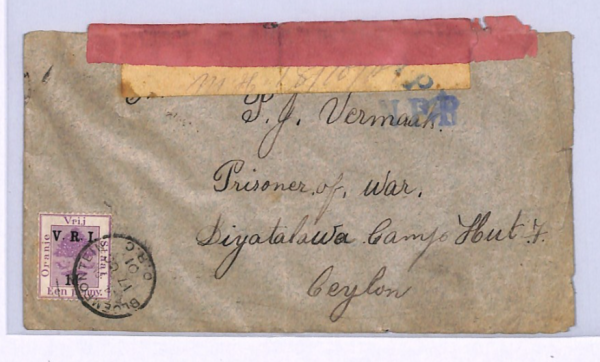 P.J. Vermaak.
Prisoner of War.
Diyatalawa Camp Hut 7.
Ceylon
Vrij
Oranje
Staat.
V. R. I.
Een penny.
BLOEMFONTEIN
O.R.C
17
01